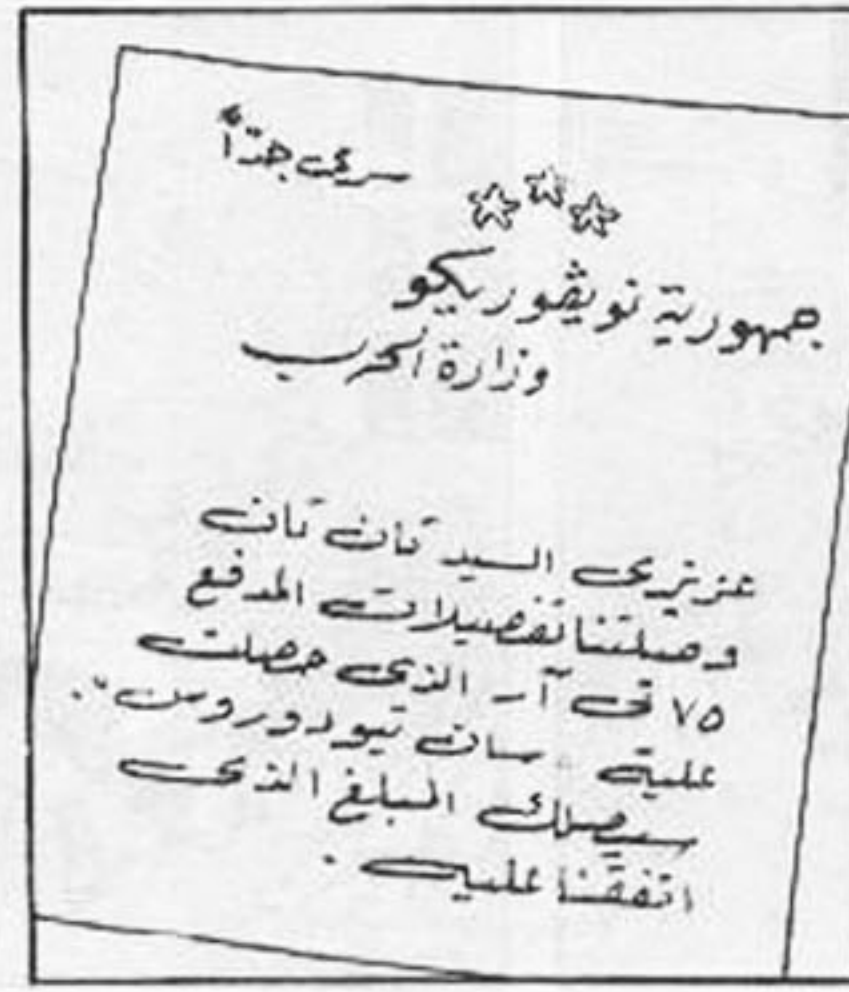 سرى جدّاً
جمهورية نويڤوريكو
وزارة الحرب
عزيزى السيد تان تان
وصلتنا تفصيلات المدفع
٧٥ تى آر الذى حصلت
عليه سان تيودوروس".
سيصلك المبلغ الذى
اتفقنا عليه .